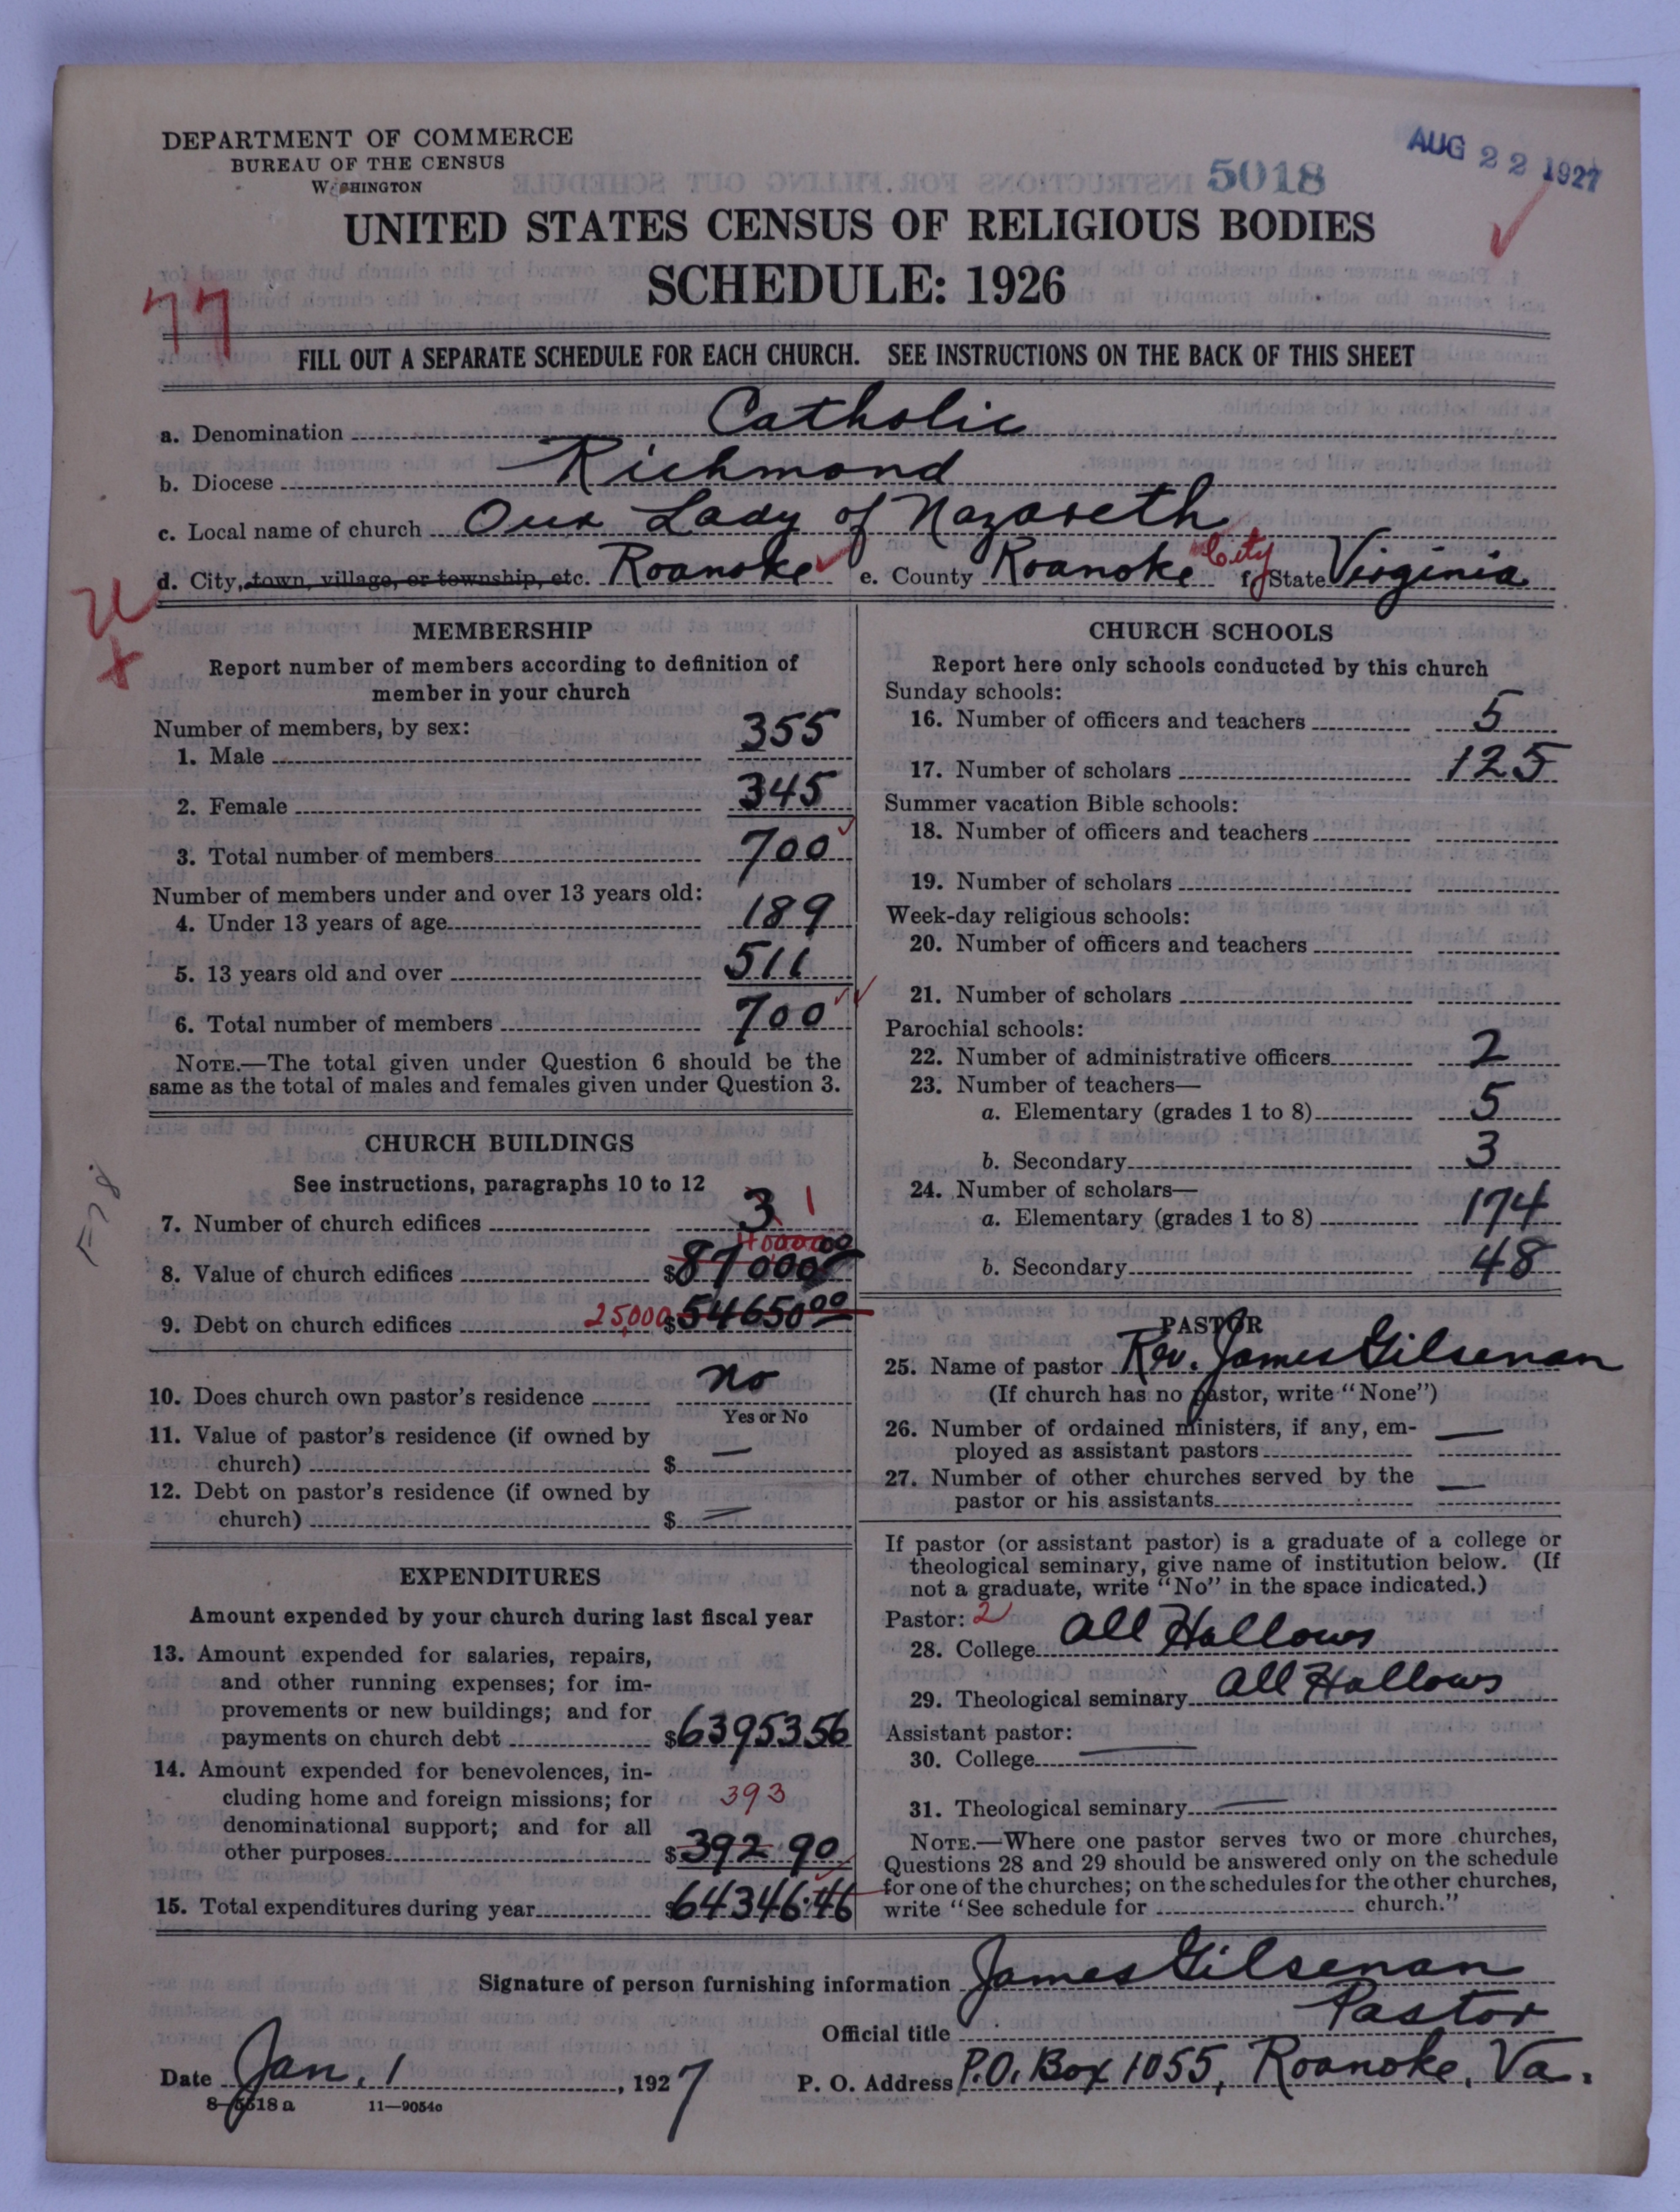 DEPARTMENT OF COMMERCE
BUREAU OF THE CENSUS
WASHINGTON
5018
AUG 22 1927
UNITED STATES CENSUS OF RELIGIOUS BODIES
SCHEDULE: 1926
77
FILL OUT A SEPARATE SCHEDULE FOR EACH CHURCH. SEE INSTRUCTIONS ON THE BACK OF THIS SHEET
a. Denomination Catholic
b. Diocese Richmond
c. Local name of church Our Lady of Nazareth
d. City, town, village, or township, etc. Roanoke e. County Roanoke City f. State Virginia
MEMBERSHIP
Report number of members according to definition of
member in your church
Number of members, by sex:
1. Male 355
2. Female 345
3. Total number of members 700
Number of members under and over 13 years old:
4. Under 13 years of age 189
5. 13 years old and over 511
6. Total number of members 700
NOTE.—The total given under Question 6 should be the
same as the total of males and females given under Question 3.
CHURCH BUILDINGS
See instructions, paragraphs 10 to 12
7. Number of church edifices 3 1
8. Value of church edifices $87000
9. Debt on church edifices 25,000 $54650 00
10. Does church own pastor's residence no
Yes or No
11. Value of pastor's residence (if owned by
church) $ —
12. Debt on pastor's residence (if owned by
church) $ —
EXPENDITURES
Amount expended by your church during last fiscal year
13. Amount expended for salaries, repairs,
and other running expenses; for im-
provements or new buildings; and for
payments on church debt $63953 56
14. Amount expended for benevolences, in-
cluding home and foreign missions; for 393
denominational support; and for all
other purposes $392 90
15. Total expenditures during year $64346.46
CHURCH SCHOOLS
Report here only schools conducted by this church
Sunday schools:
16. Number of officers and teachers 5
17. Number of scholars 125
Summer vacation Bible schools:
18. Number of officers and teachers
19. Number of scholars
Week-day religious schools:
20. Number of officers and teachers
21. Number of scholars
Parochial schools:
22. Number of administrative officers 2
23. Number of teachers—
a. Elementary (grades 1 to 8) 5
b. Secondary 3
24. Number of scholars—
a. Elementary (grades 1 to 8) 174
b. Secondary 48
PASTOR
25. Name of pastor Rev. James Gilsenan
(If church has no pastor, write "None")
26. Number of ordained ministers, if any, em-
ployed as assistant pastors —
27. Number of other churches served by the
pastor or his assistants —
If pastor (or assistant pastor) is a graduate of a college or
theological seminary, give name of institution below. (If
not a graduate, write "No" in the space indicated.)
Pastor: 2
28. College All Hallows
29. Theological seminary All Hallows
Assistant pastor:
30. College —
31. Theological seminary —
NOTE.—Where one pastor serves two or more churches,
Questions 28 and 29 should be answered only on the schedule
for one of the churches; on the schedules for the other churches,
write "See schedule for church."
Signature of person furnishing information James Gilsenan
Official title Pastor
Date Jan. 1, 1927 P. O. Address P.O. Box 1055, Roanoke, Va.
8—5518 a 11—9054c